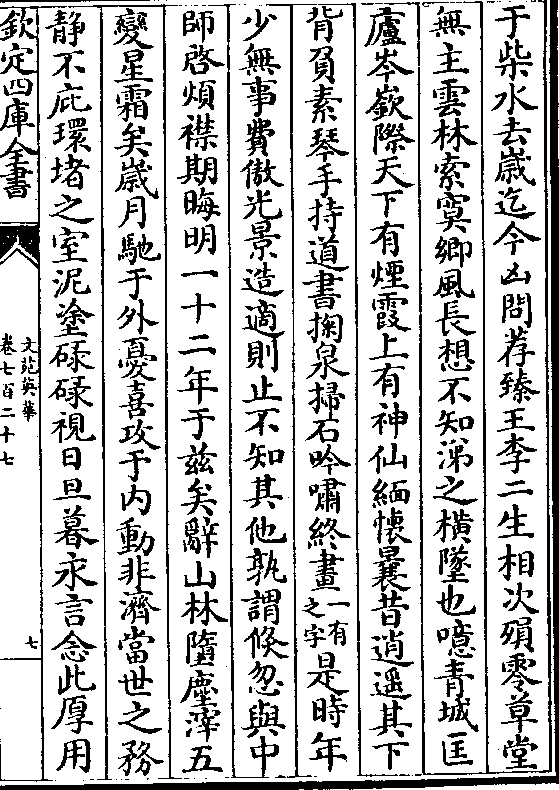 于柴水去嵗迄今凶問荐臻王李二生相次殞零草堂
無主雲林索寞鄉風長想不知涕之横墜也噫青城匡
廬岑嶔際天下有煙霞上有神仙緬懷曩昔逍遥其下
背負素琴手持道書掬泉掃石吟嘯終晝一有之字是時年
少無事費傲光景造適則止不知其他孰謂倐忽與中
師啓煩襟期晦明一十二年于兹矣辭山林墮塵滓五
變星霜矣嵗月馳于外憂喜攻于内動非濟當世之務
静不庇環堵之室泥塗碌碌視日旦暮永言念此厚用
欽定四庫全書
文苑英華
卷七百二十七
七